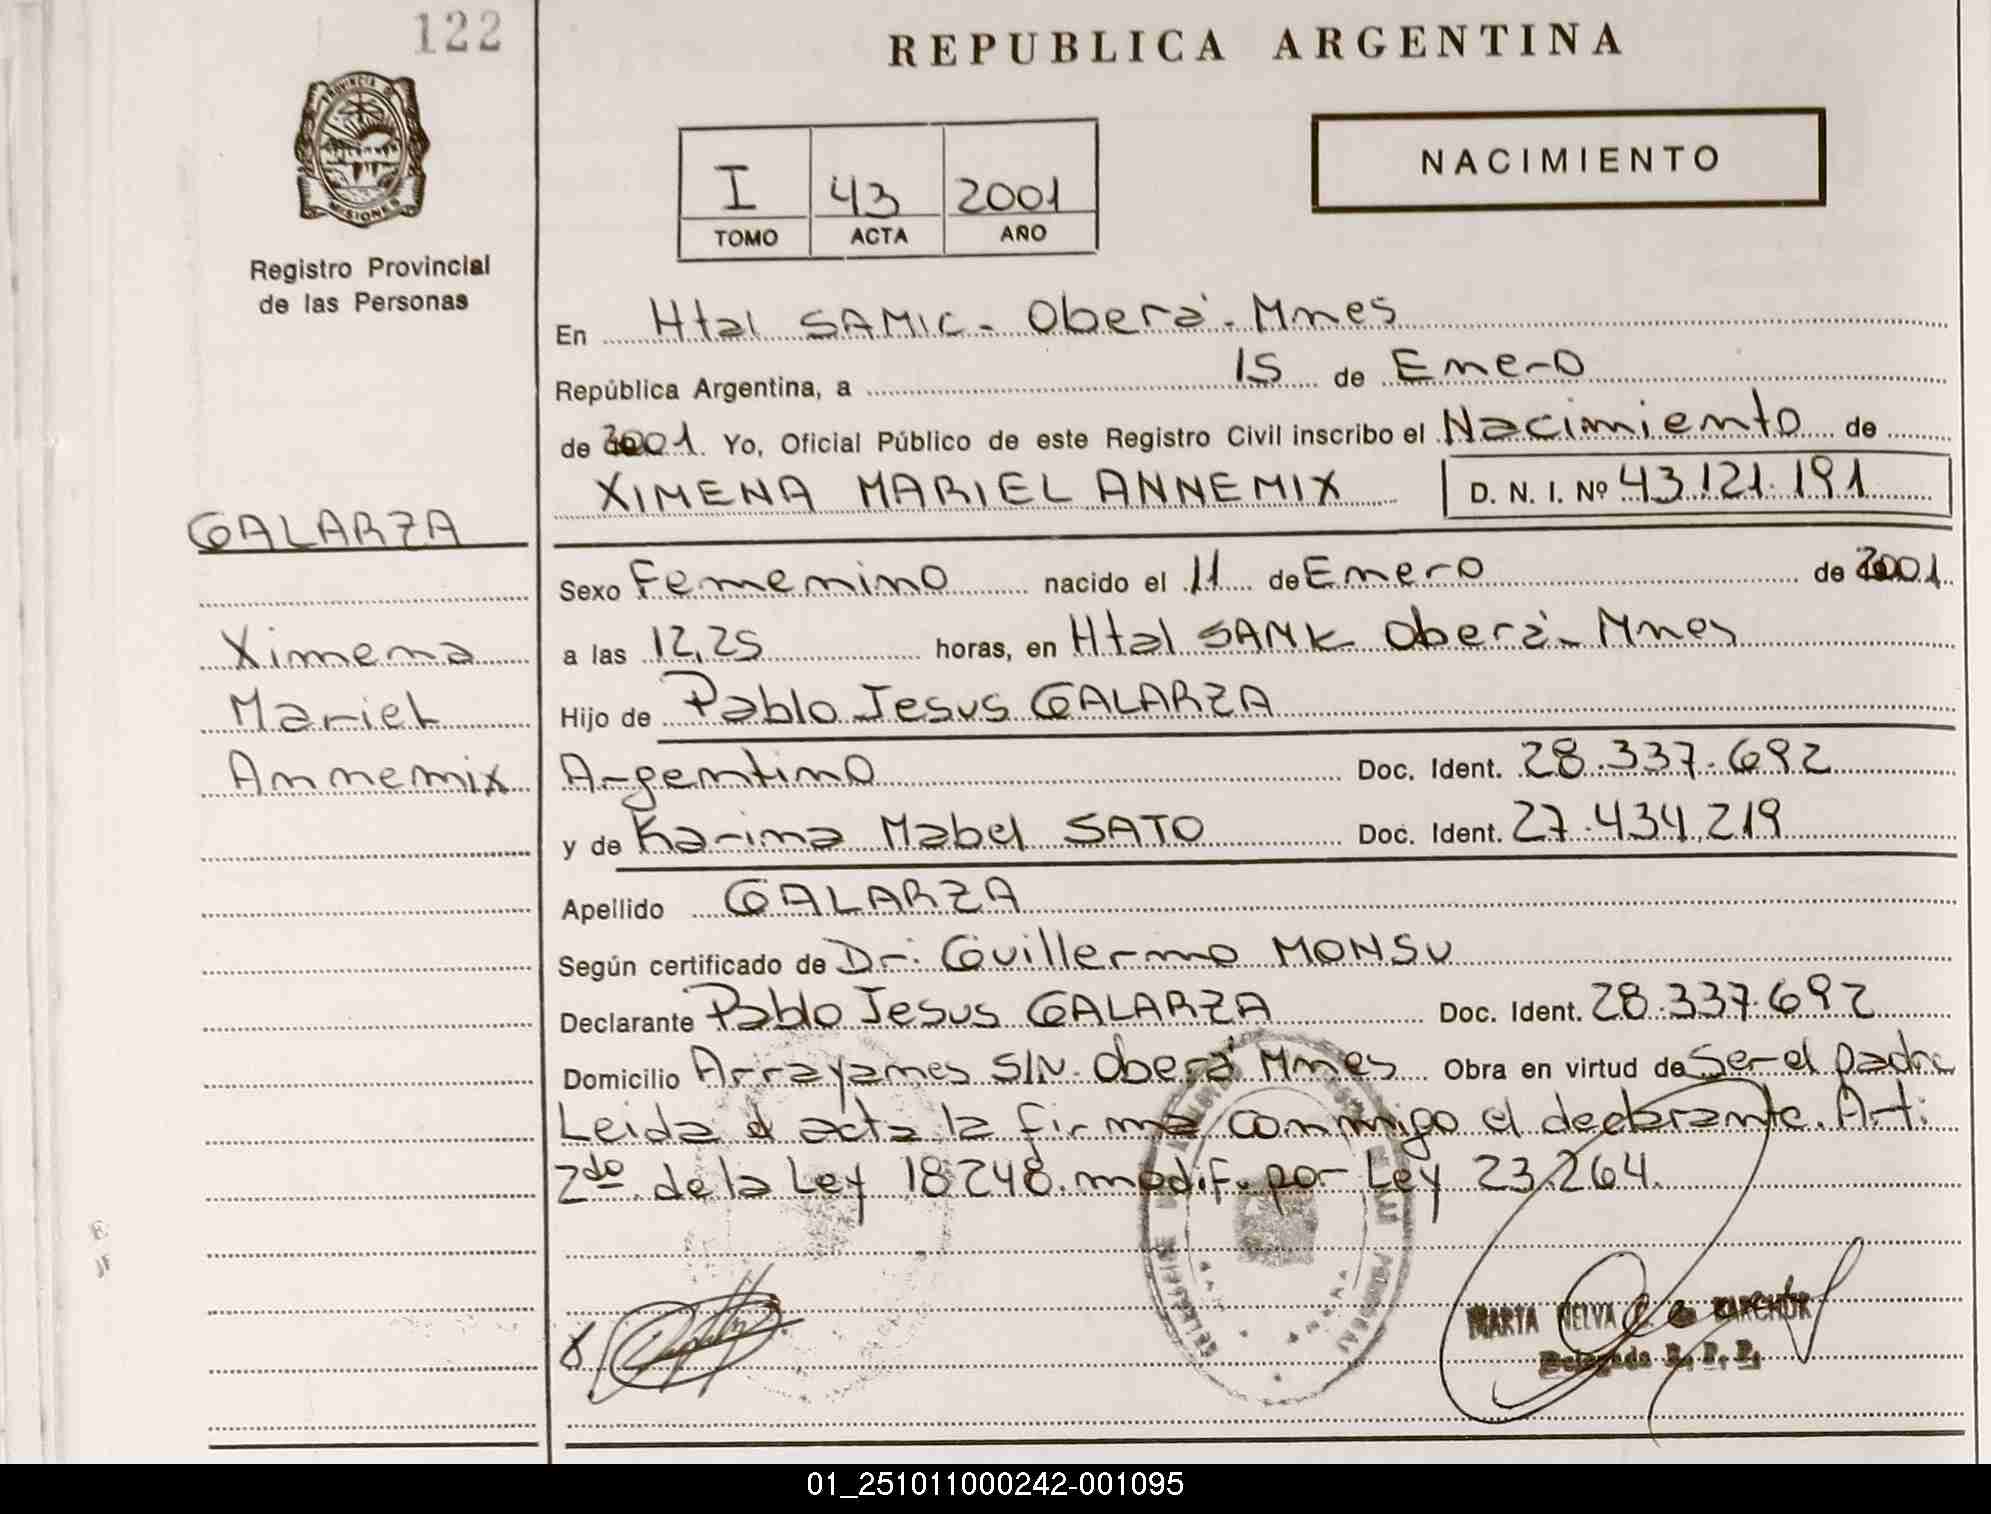 122
REPUBLICA ARGENTINA
PROVINCIA D
MISIONES
Registro Provincial
de las Personas
I 43 2001
TOMO ACTA AÑO
NACIMIENTO
En Htal SAMIC. Oberá. Mnes
República Argentina, a 15 de Enero
de 2001. Yo, Oficial Público de este Registro Civil inscribo el Nacimiento de
XIMENA MARIEL ANNEMIX D. N. I. Nº 43.121.191
GALARZA
Sexo Femenino nacido el 11 de Enero de 2001
a las 12,25 horas, en Htal SAMIC Oberá Mnes
Ximena
Hijo de Pablo Jesus GALARZA
Mariel
Argentino Doc. Ident. 28.337.692
Annemix
y de Karina Mabel SATO Doc. Ident. 27.434.219
Apellido GALARZA
Según certificado de Dr. Guillermo MONSU
Declarante Pablo Jesus GALARZA Doc. Ident. 28.337.692
Domicilio Arrayanes S/N. Oberá Mnes Obra en virtud de Ser el padre
Leida el acta la firma conmigo el declarante. Art.
2do de la Ley 18248. modif. por Ley 23.264.
MARTA NELVA
Delegada R. P. P.
01_251011000242-001095